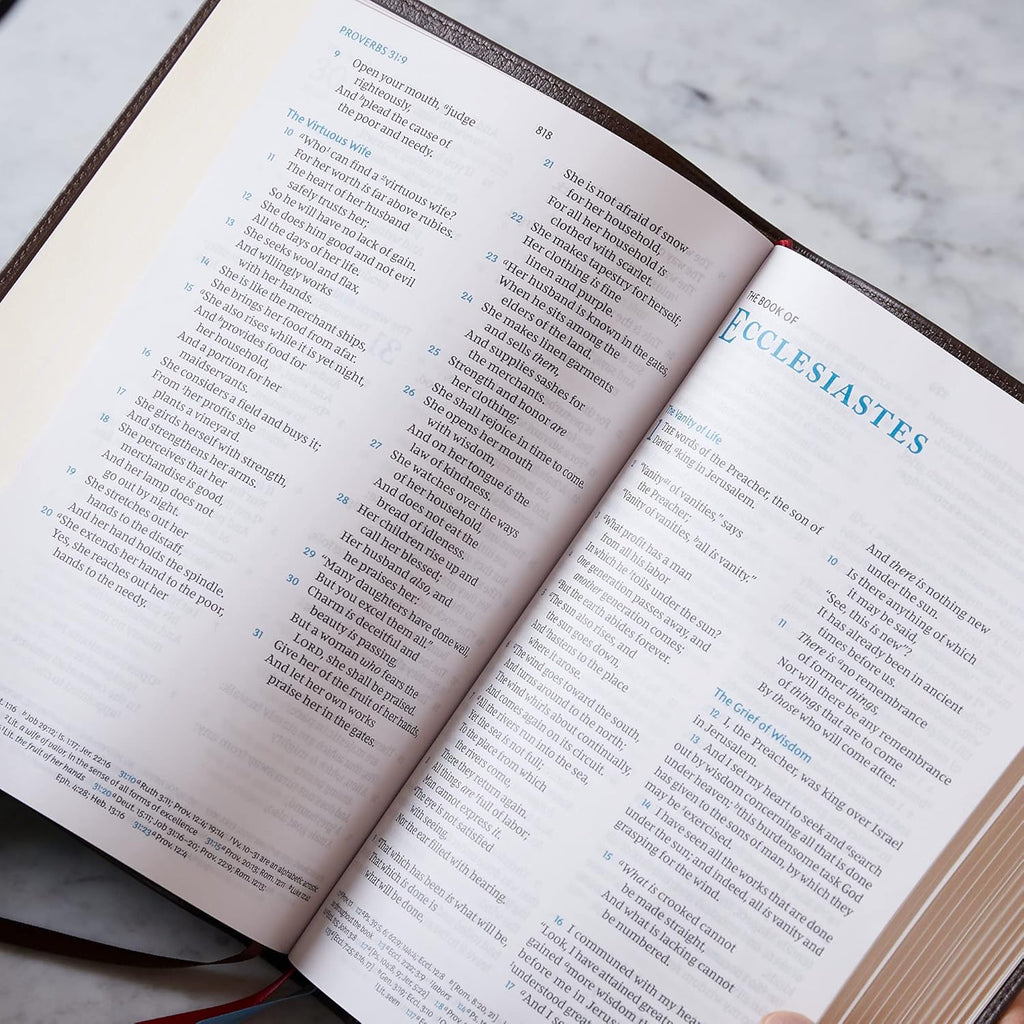 PROVERBS 31:9
818
9 Open your mouth, ᵃjudge
righteously,
And ᵇplead the cause of
the poor and needy.
The Virtuous Wife
10 ᵃWho¹ can find a ²virtuous wife?
For her worth is far above rubies.
11 The heart of her husband
safely trusts her;
So he will have no lack of gain.
12 She does him good and not evil
All the days of her life.
13 She seeks wool and flax,
And willingly works
with her hands.
14 She is like the merchant ships,
She brings her food from afar.
15 ᵃShe also rises while it is yet night,
And ᵇprovides food for
her household,
And a portion for her
maidservants.
16 She considers a field and buys it;
From ³her profits she
plants a vineyard.
17 She girds herself with strength,
And strengthens her arms.
18 She perceives that her
merchandise is good,
And her lamp does not
go out by night.
19 She stretches out her
hands to the distaff,
And her hand holds the spindle.
20 ᵃShe extends her hand to the poor,
Yes, she reaches out her
hands to the needy.
21 She is not afraid of snow
for her household,
For all her household is
clothed with scarlet.
22 She makes tapestry for herself;
Her clothing is fine
linen and purple.
23 ᵃHer husband is known in the gates,
When he sits among the
elders of the land.
24 She makes linen garments
and sells them,
And supplies sashes for
the merchants.
25 Strength and honor are
her clothing;
She shall rejoice in time to come.
26 She opens her mouth
with wisdom,
And on her tongue is the
law of kindness.
27 She watches over the ways
of her household,
And does not eat the
bread of idleness.
28 Her children rise up and
call her blessed;
Her husband also, and
he praises her:
29 “Many daughters have done well,
But you excel them all.”
30 Charm is deceitful and
beauty is passing,
But a woman who fears the
LORD, she shall be praised.
31 Give her of the fruit of her hands,
And let her own works
praise her in the gates.
THE BOOK OF
ECCLESIASTES
The Vanity of Life
The words of the Preacher, the son of
David, ᵃking in Jerusalem.
“Vanity of vanities,” says
the Preacher;
“Vanity of vanities, ᵇall is vanity.”
What profit has a man
from all his labor
In which he toils under the sun?
One generation passes away, and
another generation comes;
ᵃBut the earth abides forever.
ᵃThe sun also rises, and
the sun goes down,
And hastens to the place
where it arose.
The wind goes toward the south,
And turns around to the north;
The wind whirls about continually,
And comes again on its circuit.
All the rivers run into the sea,
Yet the sea is not full;
To the place from which
the rivers come,
There they return again.
All things are full of labor;
Man cannot express it.
The eye is not satisfied
with seeing,
Nor the ear filled with hearing.
That which has been is what will be,
That which is done is
what will be done,
And there is nothing new
under the sun.
10 Is there anything of which
it may be said,
“See, this is new”?
It has already been in ancient
times before us.
11 There is ᵃno remembrance
of former things,
Nor will there be any remembrance
of things that are to come
By those who will come after.
The Grief of Wisdom
12 I, the Preacher, was king over Israel
in Jerusalem.
13 And I set my heart to seek and ᵃsearch
out by wisdom concerning all that is done
under heaven; ᵇthis burdensome task God
has given to the sons of man, by which they
may be exercised.
14 I have seen all the works that are done
under the sun; and indeed, all is vanity and
grasping for the wind.
15 ᵃWhat is crooked cannot
be made straight,
And what is lacking cannot
be numbered.
16 I communed with my
“Look, I have attained
gained ᵃmore wisdom
before me in
understood
17 ᵃAnd I